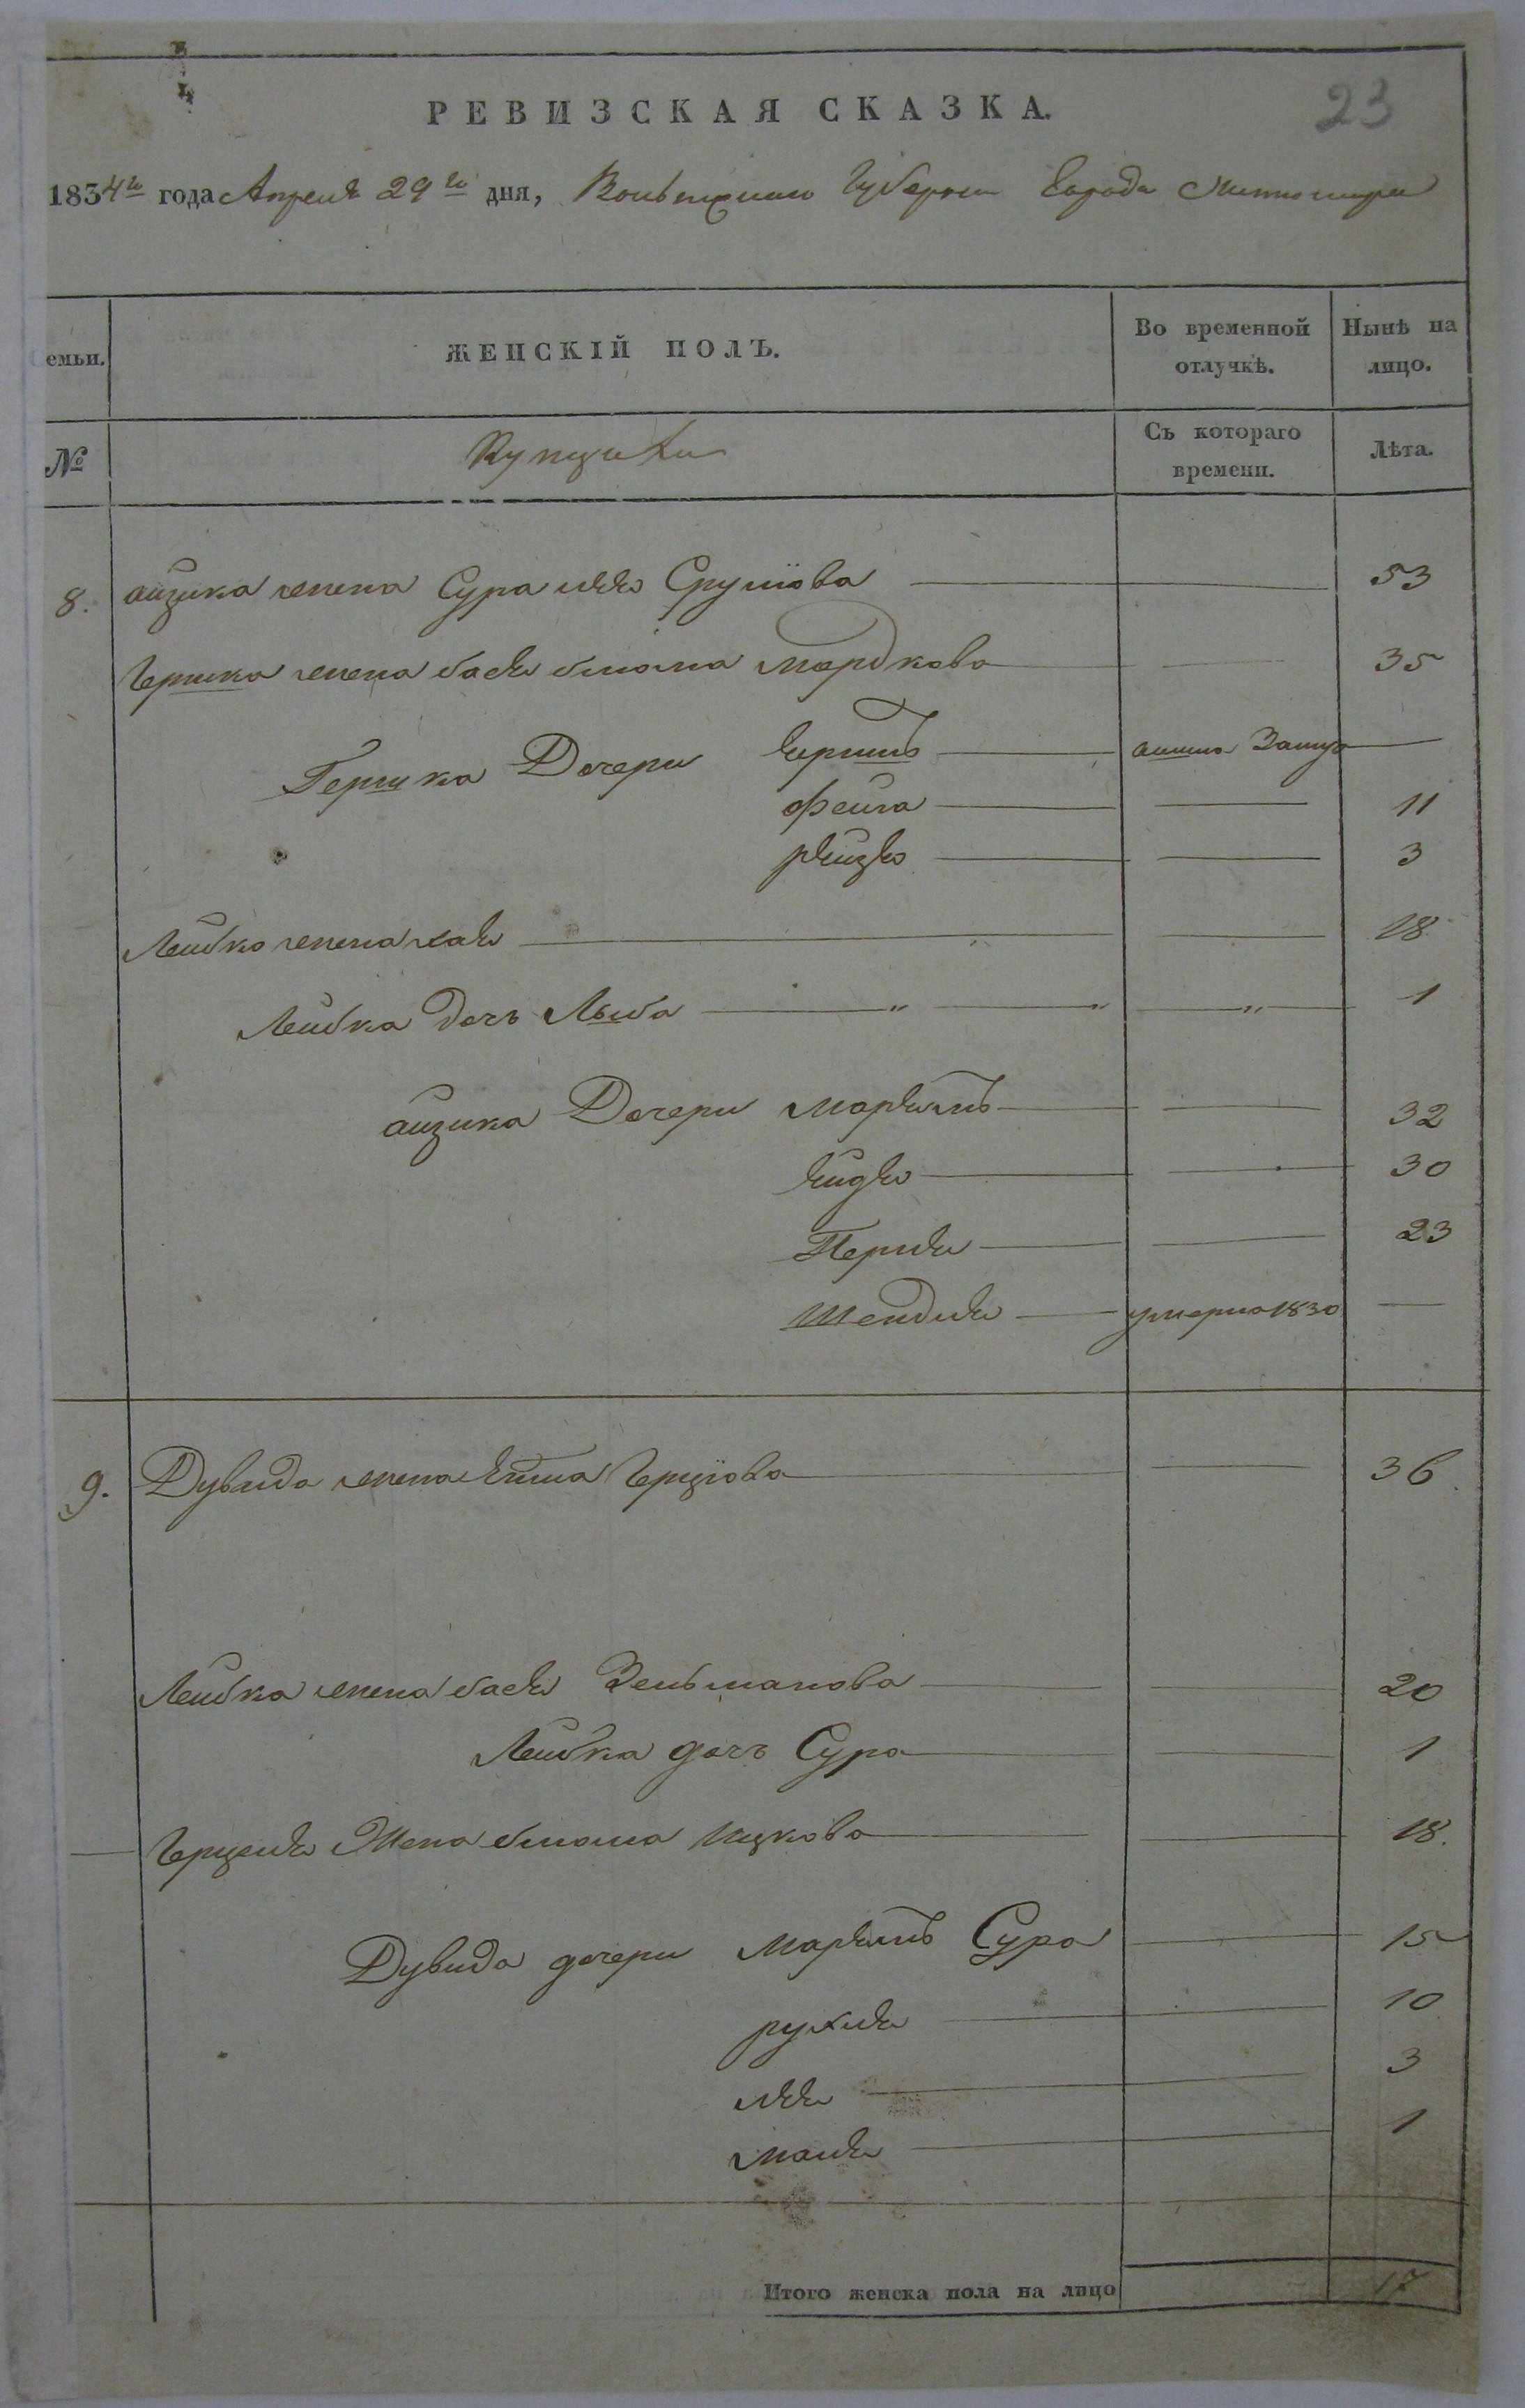 23
РЕВИЗСКАЯ СКАЗКА.
1834го года Апреля 29го дня, Волынской Губернии Города Житомира
емьи.
ЖЕНСКІЙ ПОЛЪ.
Во временной отлучкѣ.
Нынѣ на лицо.
№
Купцики
Съ котораго времени.
Лѣта.
8. айзика жена Сура лея Срулiова 53
Гершка жена бася блюма Мордкова 35
Гершка Дочери вышла Замуж
фейга 11
рейзя 3
Лейбка жена хая 18
Лейбка дочь Либа 1
айзика Дочери Марьямъ 32
30
Перля 23
Шендля умерла 1830
9. Дувида жена Ента Герцiова 36.
Лейбка жена бася Зельманова 20
Лейбка дочь Сура 1
Герцеля Жена блюма Ицкова 18.
Дувида дочери Марьямъ Сура 15
рухля 10
лея 3
маля 1
Итого женска пола на лицо 17